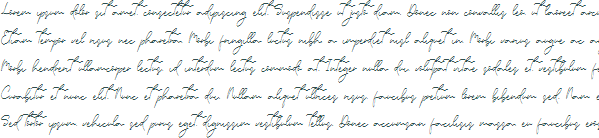 Lorem ipsum dolor sit amet, consectetur adipiscing elit. Suspendisse ut justo diam. Donec non convallis leo, ut laoreet arcu.
Etiam tempor vel risus nec pharetra. Morbi fringilla luctus nibh, a imperdiet nisl aliquet in. Morbi varius augue ac a
Morbi hendrerit ullamcorper lectus, id interdum lectus commodo at. Integer nulla dui, volutpat vitae sodales et, vestibulum f
Curabitur et nunc elit. Nunc et pharetra dui. Nullam aliquet ultrices risus, faucibus pretium lorem bibendum sed. Nam e
Sed justo ipsum, vehicula sed purus eget, dignissim vestibulum tellus. Donec accumsan facilisis massa, eu faucibus eros